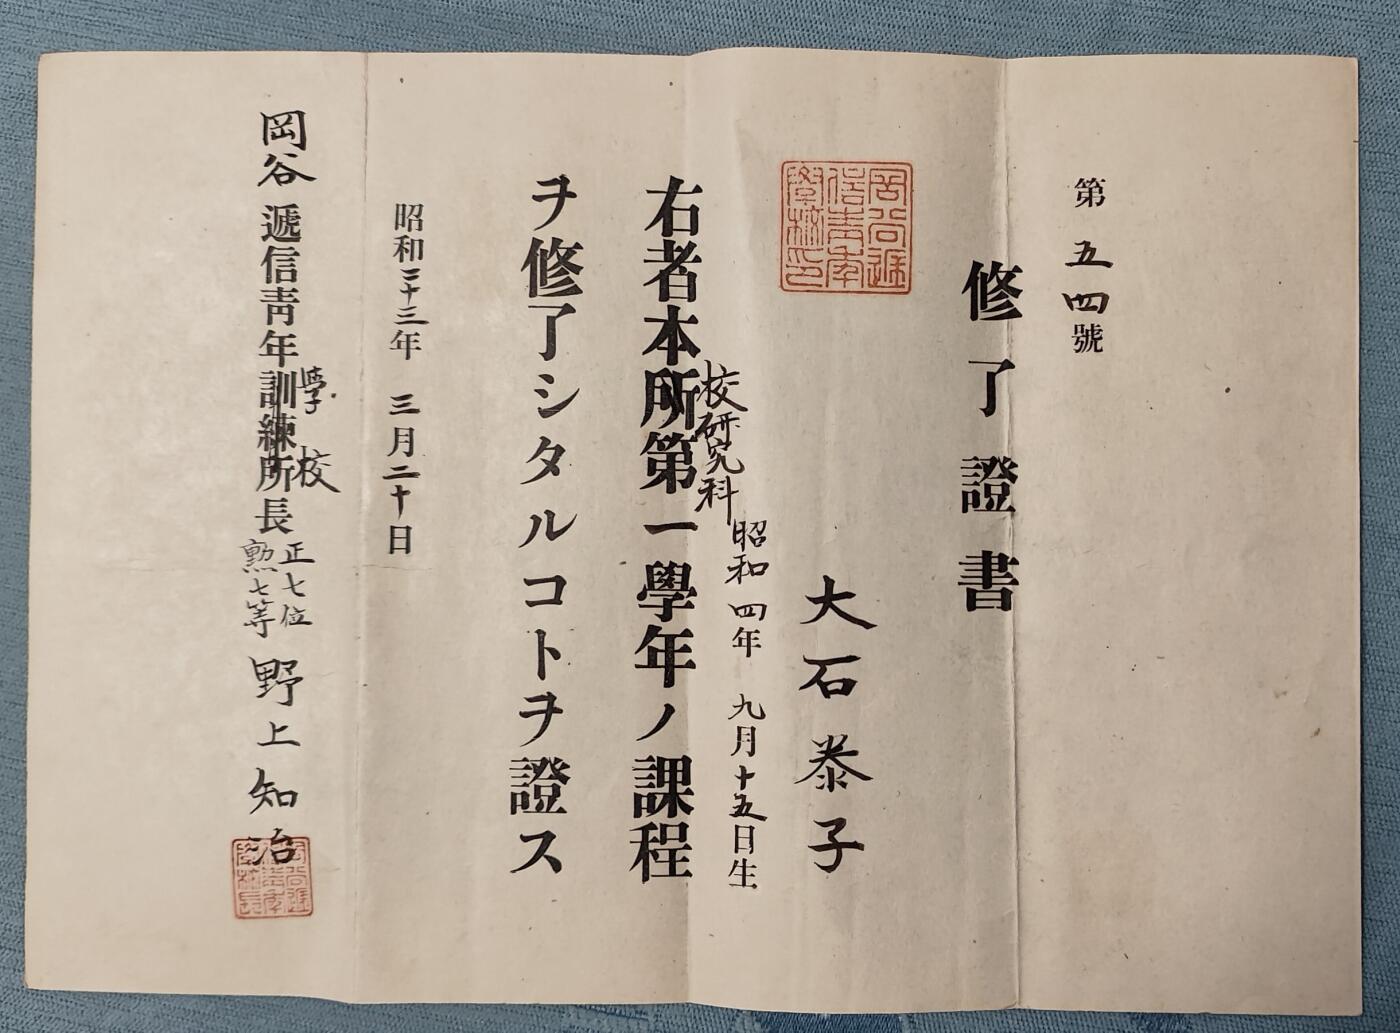 第五四號
修了證書
岡谷遞
信青年
學校印
大石泰子
昭和四年九月十五日生
校研究科
右者本所第一學年ノ課程
ヲ修了シタルコトヲ證ス
昭和二十三年三月二十日
學校
岡谷遞信靑年訓練所長
正七位
勲七等
野上知治
岡谷遞
信青年
學校長